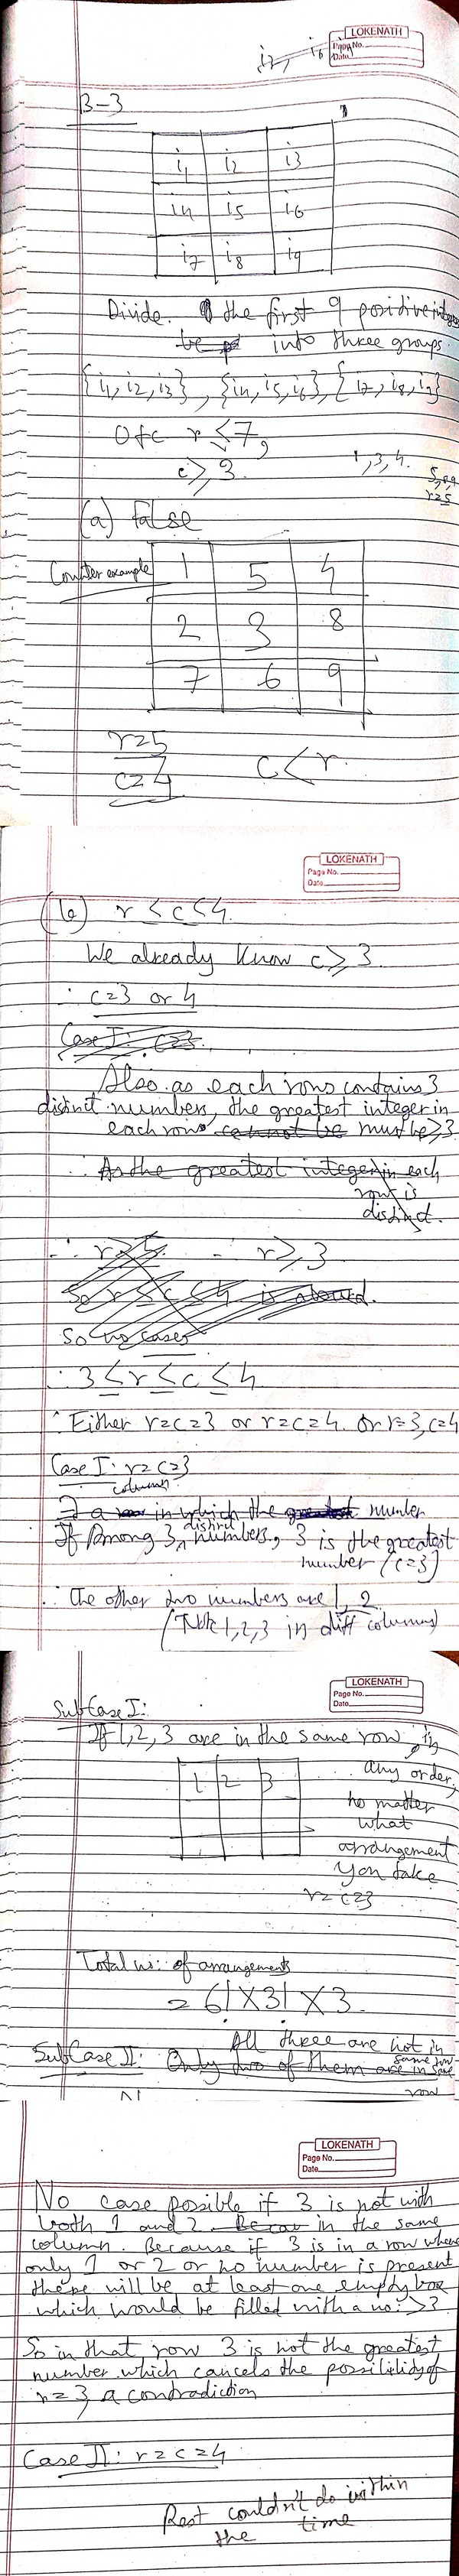 LOKENATH
Page No.
Date
B-3
i1 i2 i3
i4 i5 i6
i7 i8 i9
Divide the first 9 positive integers
into three groups.
{i1, i2, i3}, {i4, i5, i6}, {i7, i8, i9}
r ≤ 7,
c ≥ 3.
1, 3, 4.
r=5
(a) False
Counter example
1 5 4
2 3 8
7 6 9
r=5
c=4
c < r.
LOKENATH
Page No.
Date
(b) r ≤ c ≤ 4.
We already know c ≥ 3
∴ c=3 or 4
Case I: c=3.
Also as each rows contains 3
distinct numbers, the greatest integer in
each rows cannot be must be ≥ 3
∴ As the greatest integer in each
row is
distinct.
∴ r ≥ 3
So r ≤ c ≤ 4 is absurd.
So no cases
∴ 3 ≤ r ≤ c ≤ 4
∴ Either r=c=3 or r=c=4. Or r=3, c=4
Case I: r=c=3
column
∃ a row in which the greatest number
If Among 3 distinct numbers, 3 is the greatest
number (c=3)
∴ The other two numbers are 1, 2
1, 2, 3 in diff columns)
LOKENATH
Page No.
Date
SubCase I:
If 1, 2, 3 are in the same row, in
any order,
no matter
what
arrangement
you take
r=c=3
1 2 3
Total no: of arrangements
= 6! X 3! X 3.
SubCase II: All three are not in
same row
Only two of them are in same
row
LOKENATH
Page No.
Date
No case possible if 3 is not with
both 1 and 2 in the same
column. Because if 3 is in a row where
only 1 or 2 or no number is present
there will be at least one empty box
which would be filled with a no: > 3
So in that row 3 is not the greatest
number which cancels the possibility of
r=3, a contradiction
Case II: r=c=4
Rest couldn't do within
the time